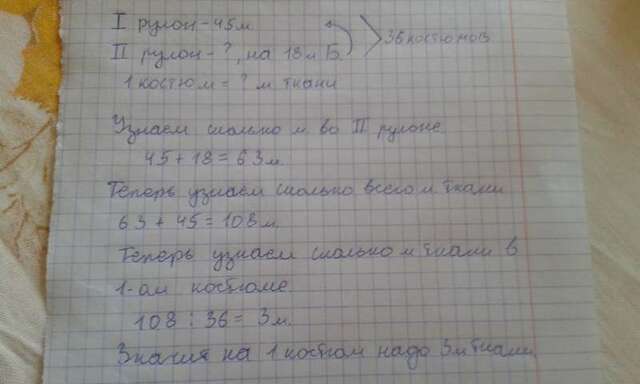 I рулон - 45 м
II рулон - ?, на 18 м Б.
36 костюмов
1 костюм = ? м ткани
Узнаем сколько м во II рулоне
45 + 18 = 63 м.
Теперь узнаем сколько всего м ткани
63 + 45 = 108 м.
Теперь узнаем сколько м ткани в
1-ом костюме
108 : 36 = 3 м.
на 1 костюм надо 3 м ткани